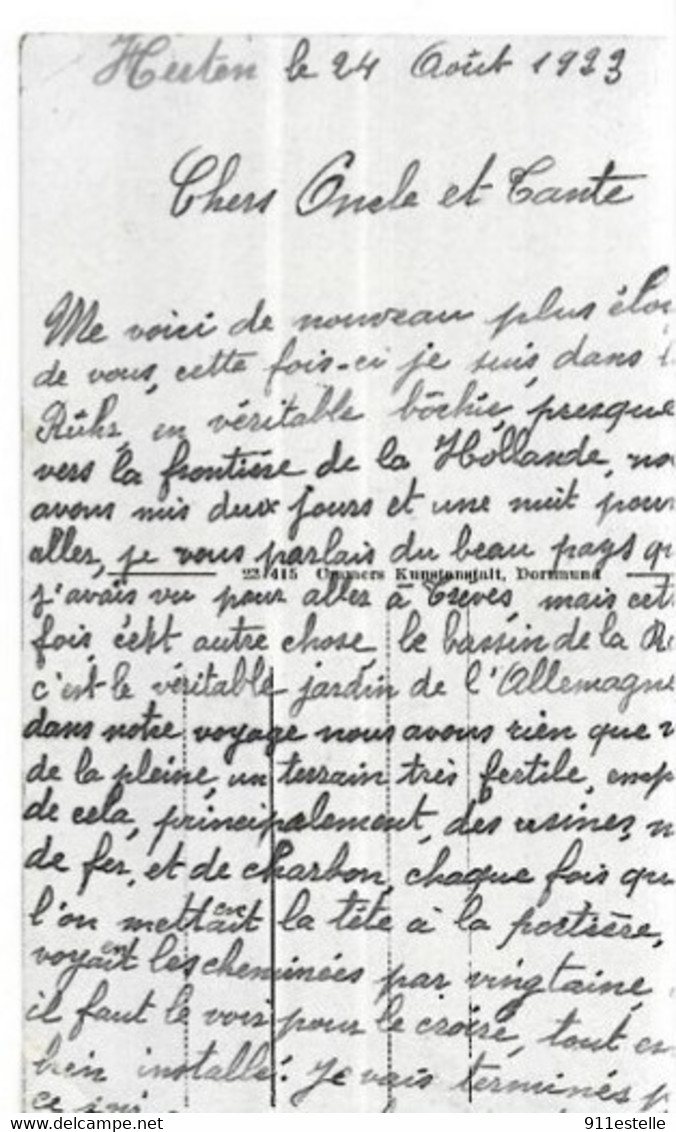 Herten le 24 Août 1923
Chers Oncle et Tante
Me voici de nouveau plus éloi
de vous, cette fois-ci je suis, dans l
Rühr, en véritable bôchie, presque
vers la frontière de la Hollande, no
avons mis deux jours et une nuit pour
aller, je vous parlais du beau pays qu
22 415 Cramers Kunstanstalt, Dortmund
j'avais vu pour aller à Trèves, mais cet
fois c'est autre chose, le bassin de la R
c'est le véritable jardin de l'Allemagne
dans notre voyage nous avons rien que v
de la pleine, un terrain très fertile, emp
de cela, principalement, des usines, m
de fer, et de charbon, chaque fois qu
l'on mettait en la tête à la portière,
voyait en les cheminées par vingtaine,
il faut le voir pour le croire, tout en
bien installé. Je vais terminés p
ce
© 911estelle